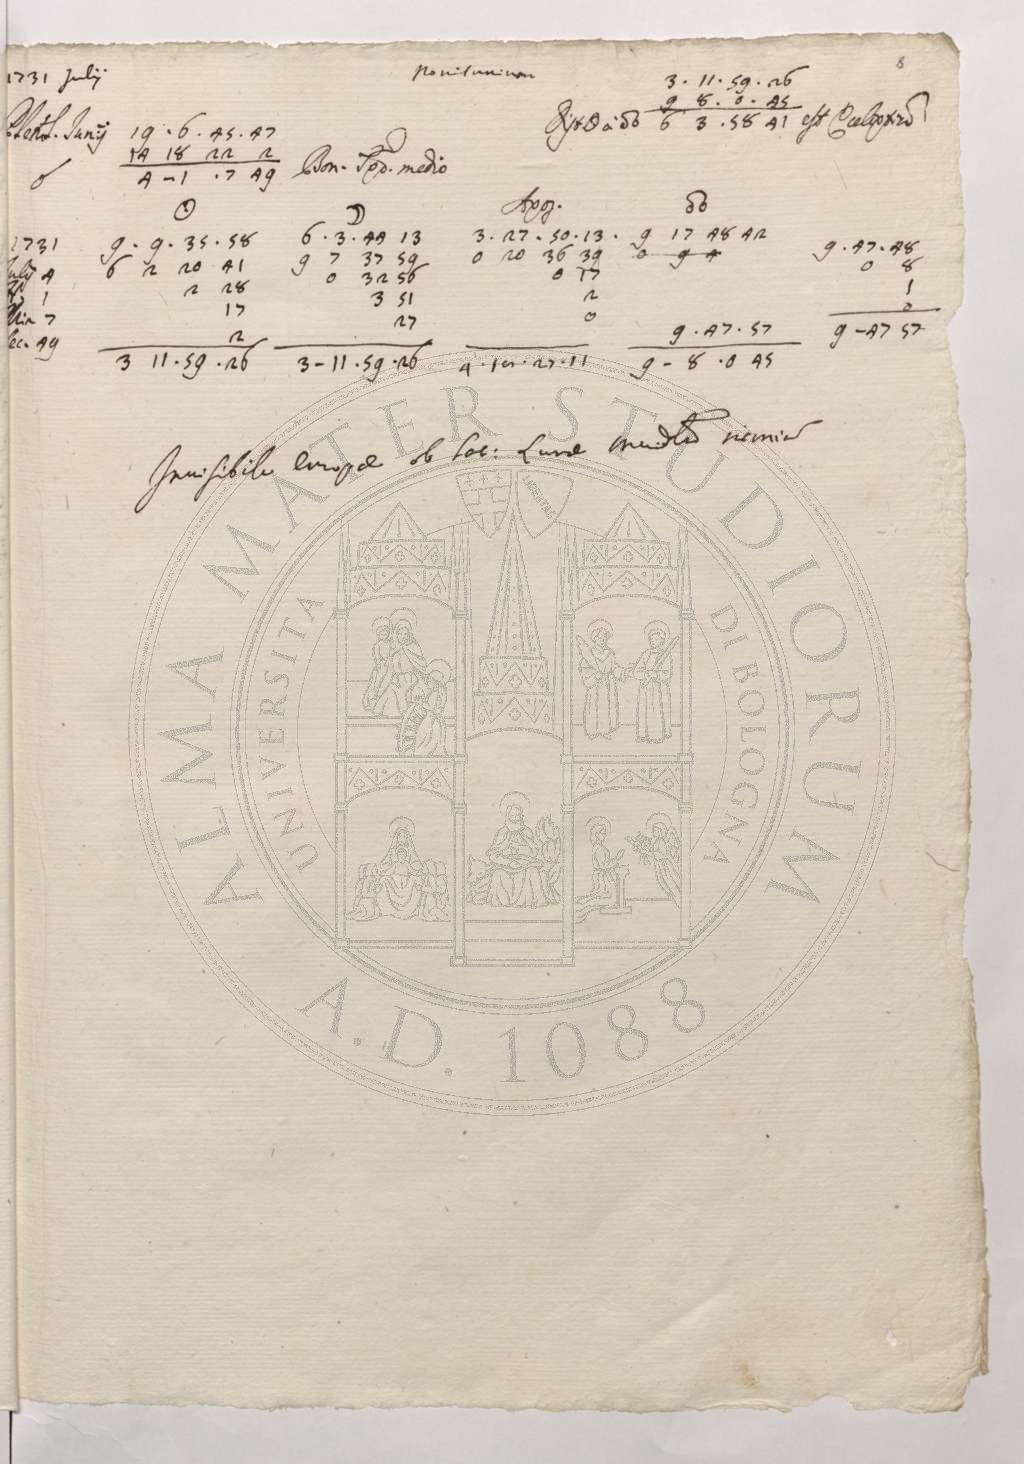 8
1731 Julij Novilunium 3 . 11 . 59 . 26
9 8 . 0 . 45
Dist ☉ a ☊ 6 3 . 58 41 est
Junij 19 . 6 . 45 . 47
14 18 22 2
4 - 1 . 7 49 Bon. Temp. medio
☉ ☽ Apog. ☊
1731 9 . 9 . 35 . 58 6 . 3 . 44 13 3 . 27 . 50 . 13 . 9 17 48 42 9 . 47 . 48
Julij 4 6 2 20 41 9 7 37 59 0 20 36 39 0 9 4 0 8
1 2 28 0 32 56 0 17 1
Min 7 17 3 51 2 0
Sec. 49 2 27 0 9 . 47 . 57 9 - 47 57
3 11 . 59 . 26 3 - 11 . 59 . 26 4 . 18 . 27 . 11 9 - 8 . 0 45
Invisibile Europæ ob Lat: Lunæ nimiam
ALMA MATER STUDIORUM
UNIVERSITÀ DI BOLOGNA
LIBERTAS
A.D. 1088